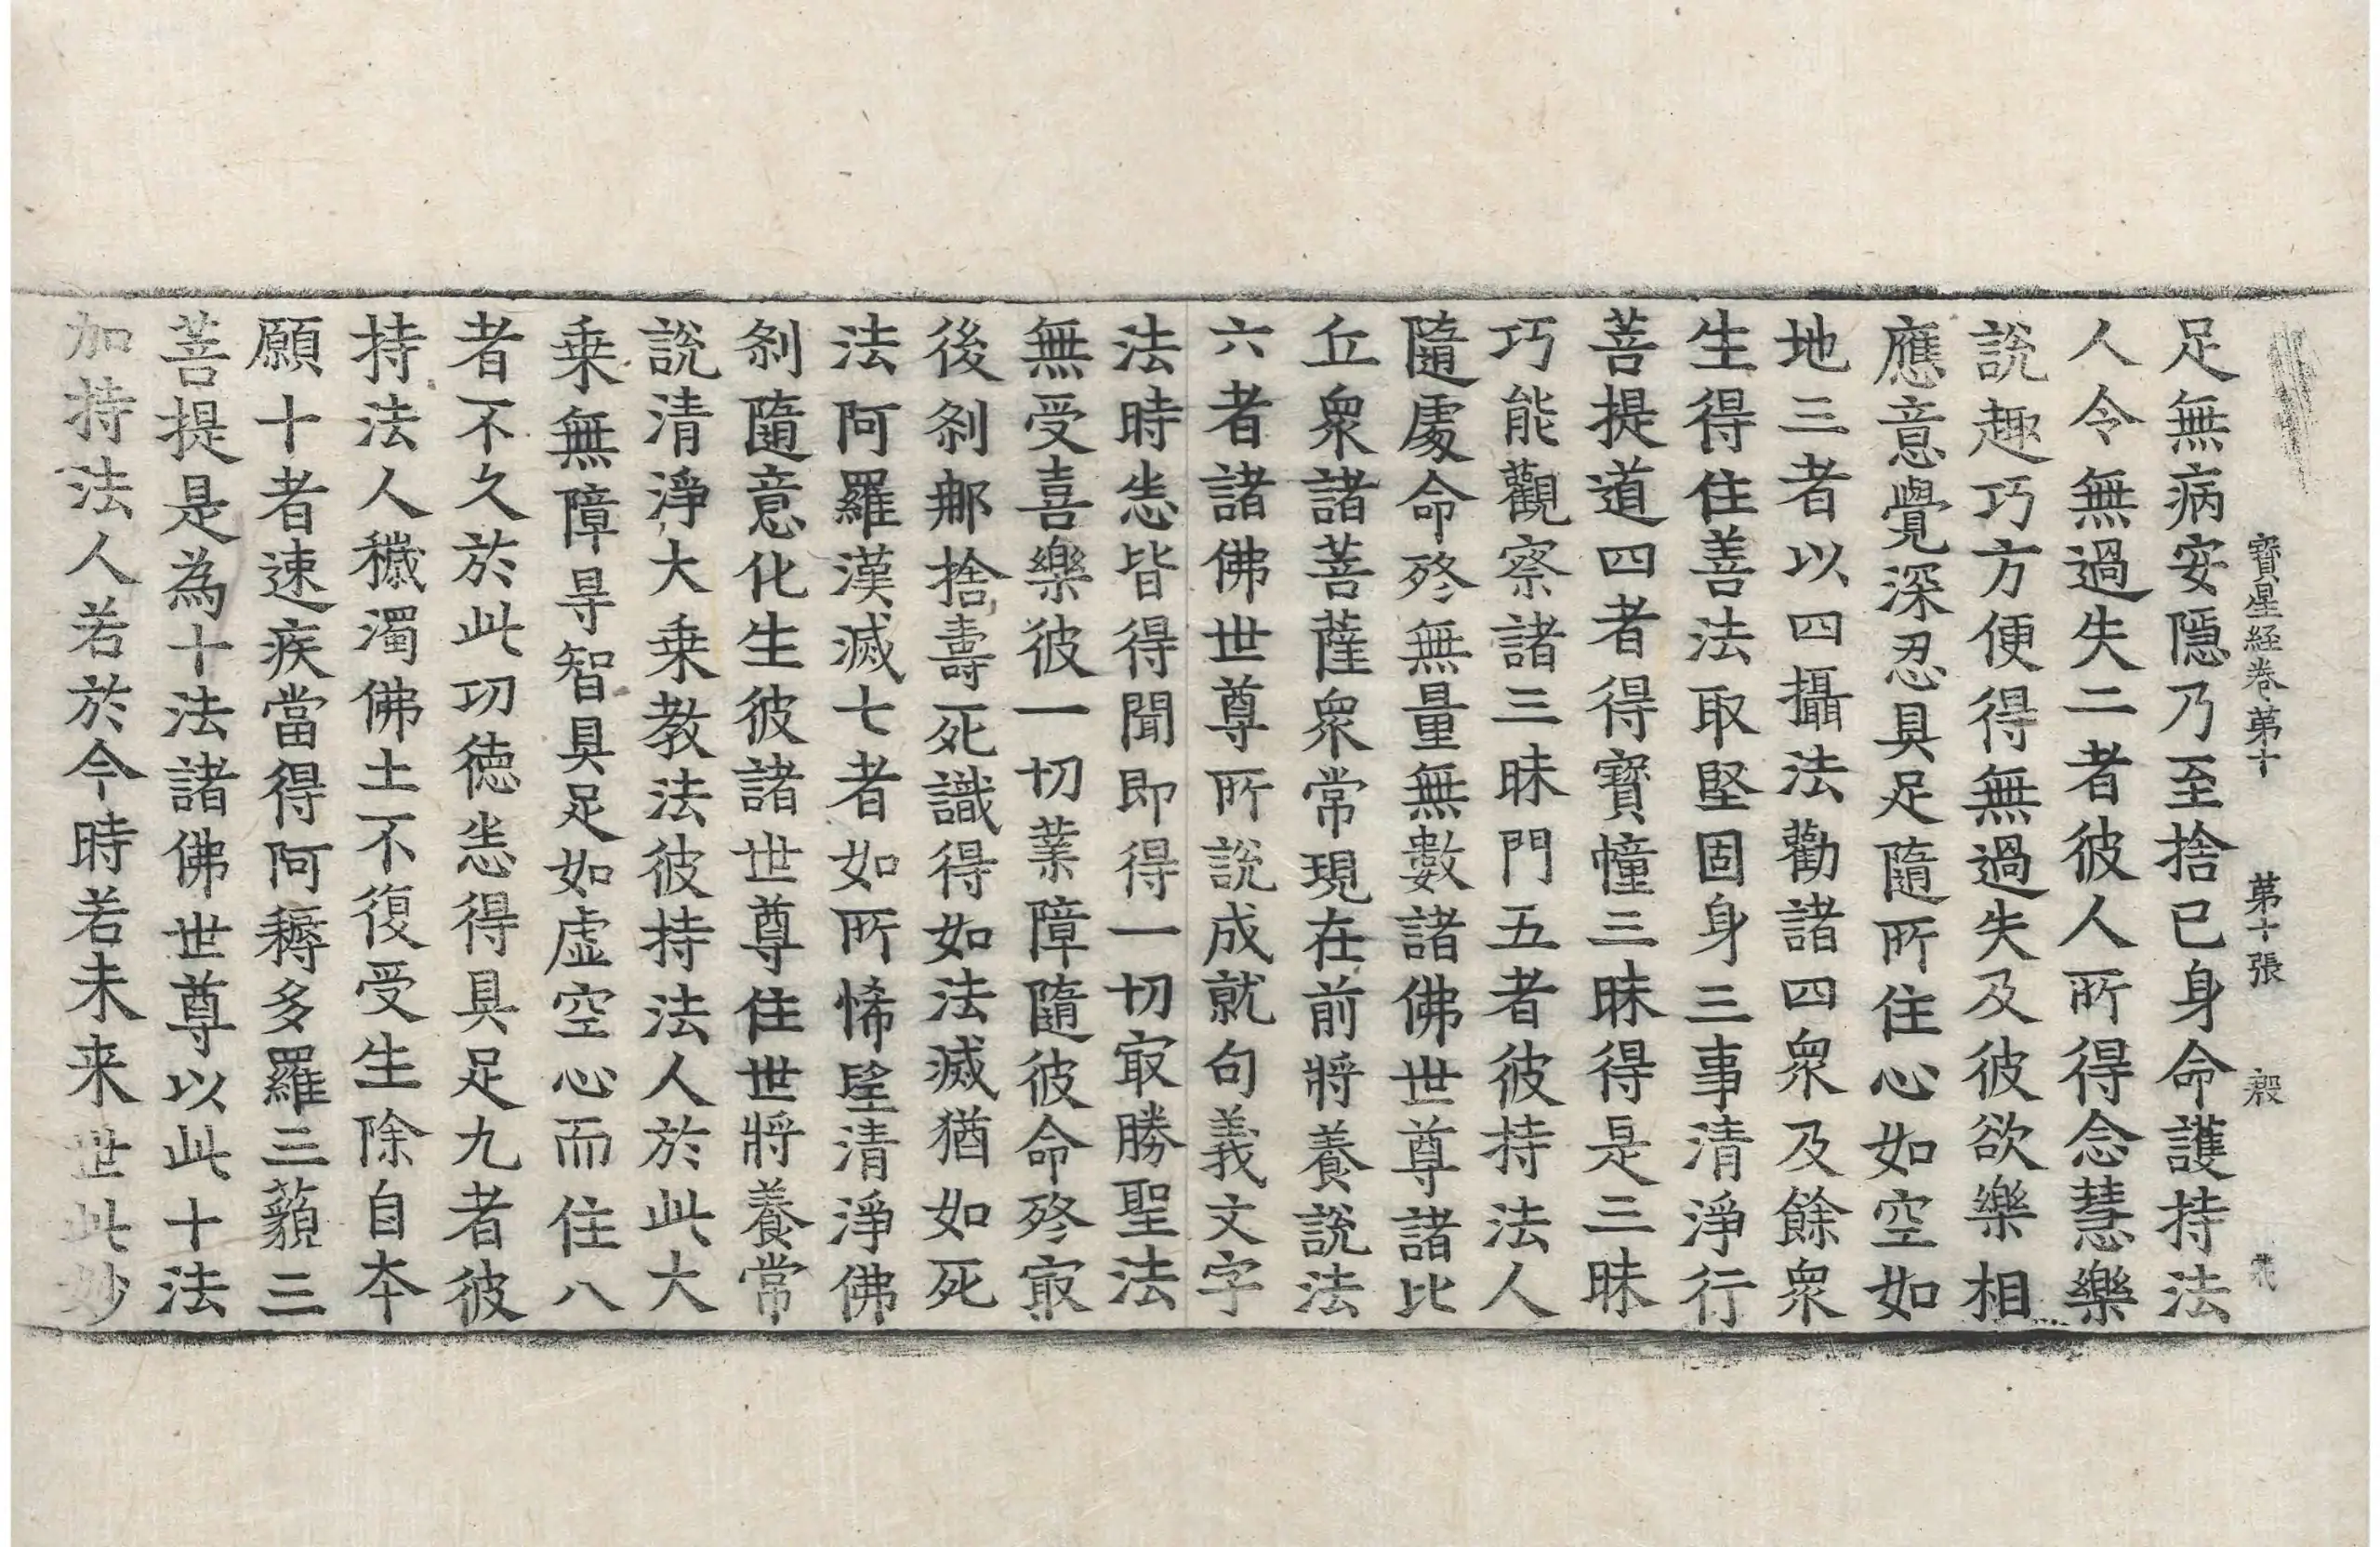 寶星経卷第十 第十張 殷
足無病安隱乃至捨己身命護持法
人令無過失二者彼人所得念慧樂
說趣巧方便得無過失及彼欲樂相
應意覺深忍具足隨所住心如空如
地三者以四攝法勸諸四衆及餘衆
生得住善法取堅固身三事清淨行
菩提道四者得寶幢三昧得是三昧
巧能觀察諸三昧門五者彼持法人
隨處命終無量無數諸佛世尊諸比
丘衆諸菩薩衆常現在前將養說法
六者諸佛世尊所說成就句義文字
法時悉皆得聞即得一切冣勝聖法
無受喜樂彼一切業障隨彼命終冣
後刹那捨壽死識得如法滅猶如死
法阿羅漢滅七者如所悕望清淨佛
刹隨意化生彼諸世尊住世將養常
說清淨大乗教法彼持法人於此大
乗無障㝵智具足如虛空心而住八
者不久於此功德悉得具足九者彼
持法人穢濁佛土不復受生除自本
願十者速疾當得阿耨多羅三藐三
菩提是為十法諸佛世尊以此十法
加持法人若於今時若未来世此妙